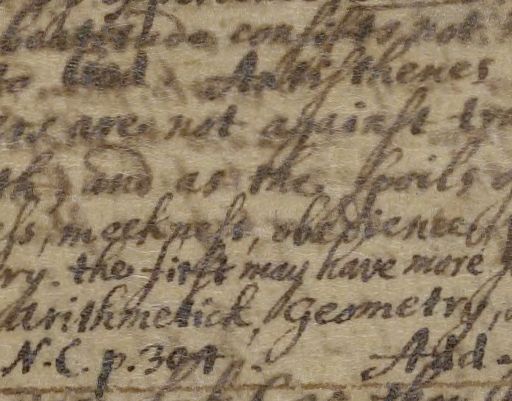 beatitude consists not
to God. Antisthenes
are not against
and as the spoils
meekness, obedience
ry. the first may have more
Arithmetick, Geometry,
N. C. p. 394. Add.